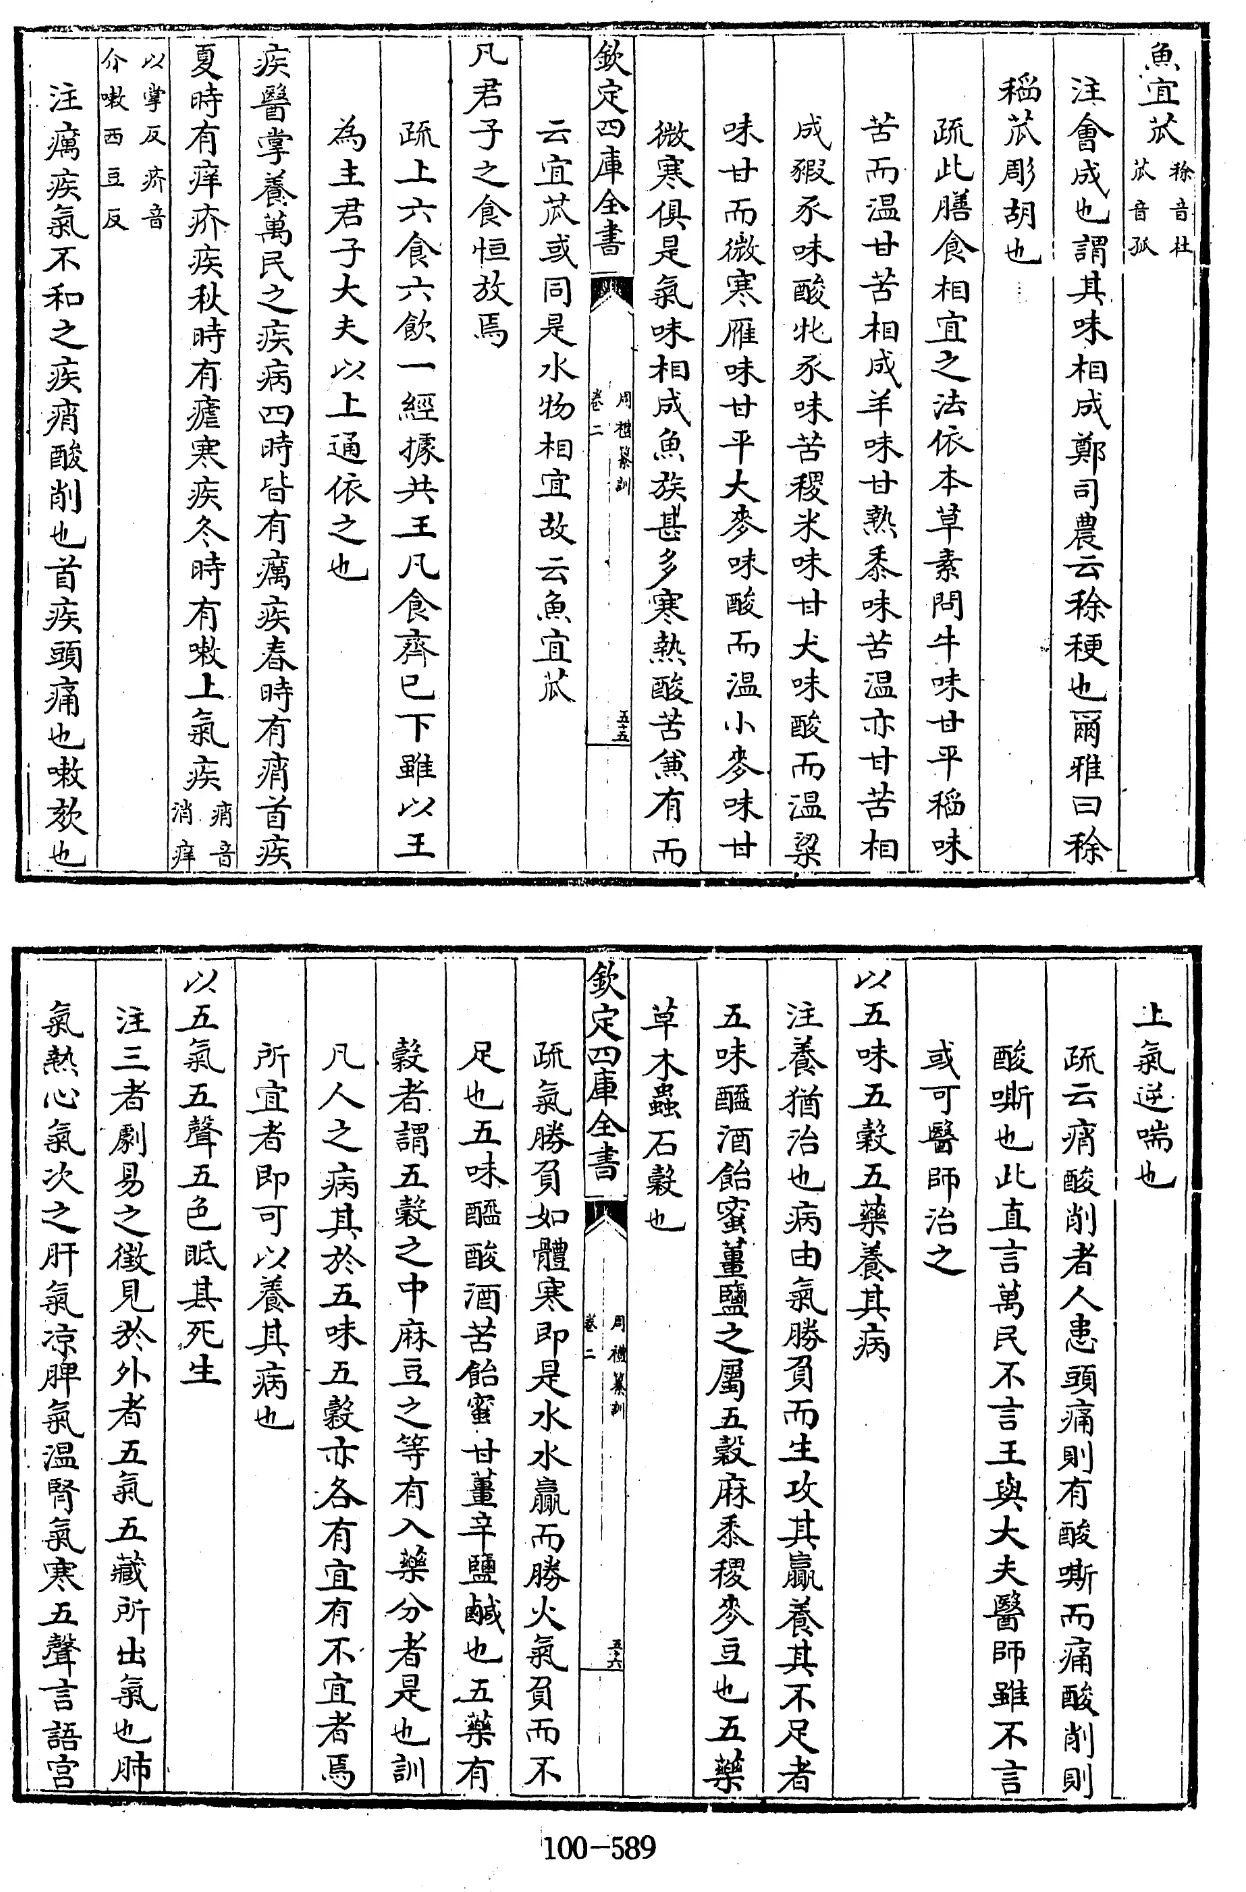 魚宜苽 稌音杜 苽音孤
注會成也謂其味相成鄭司農云稌稉也爾雅曰稌
稻苽彫胡也
疏此膳食相宜之法依本草素問牛味甘平稻味
苦而温甘苦相成羊味甘熱黍味苦温亦甘苦相
成豭豕味酸牝豕味苦稷米味甘犬味酸而温粱
味甘而微寒雁味甘平大麥味酸而温小麥味甘
微寒俱是氣味相成魚族甚多寒熱酸苦兼有而
欽定四庫全書
周禮纂訓
卷二
五五
云宜苽或同是水物相宜故云魚宜苽
凡君子之食恒放焉
疏上六食六飲一經據共王凡食齊已下雖以王
為主君子大夫以上通依之也
疾醫掌養萬民之疾病四時皆有癘疾春時有痟首疾
夏時有痒疥疾秋時有瘧寒疾冬時有嗽上氣疾 痟音消痒
以掌反疥音介嗽西豆反
注癘疾氣不和之疾痟酸削也首疾頭痛也嗽欬也
上氣逆喘也
疏云痟酸削者人患頭痛則有酸嘶而痛酸削則
酸嘶也此直言萬民不言王與大夫醫師雖不言
或可醫師治之
以五味五穀五藥養其病
注養猶治也病由氣勝負而生攻其贏養其不足者
五味醯酒飴蜜薑鹽之屬五穀麻黍稷麥豆也五藥
草木蟲石穀也
欽定四庫全書
周禮纂訓
卷二
五六
疏氣勝負如體寒即是水水贏而勝火氣負而不
足也五味醯酸酒苦飴蜜甘薑辛鹽鹹也五藥有
穀者謂五穀之中麻豆之等有入藥分者是也訓
凡人之病其於五味五穀亦各有宜有不宜者焉
所宜者即可以養其病也
以五氣五聲五色眂其死生
注三者劇易之徵見於外者五氣五藏所出氣也肺
氣熱心氣次之肝氣凉脾氣温腎氣寒五聲言語宫
100-589